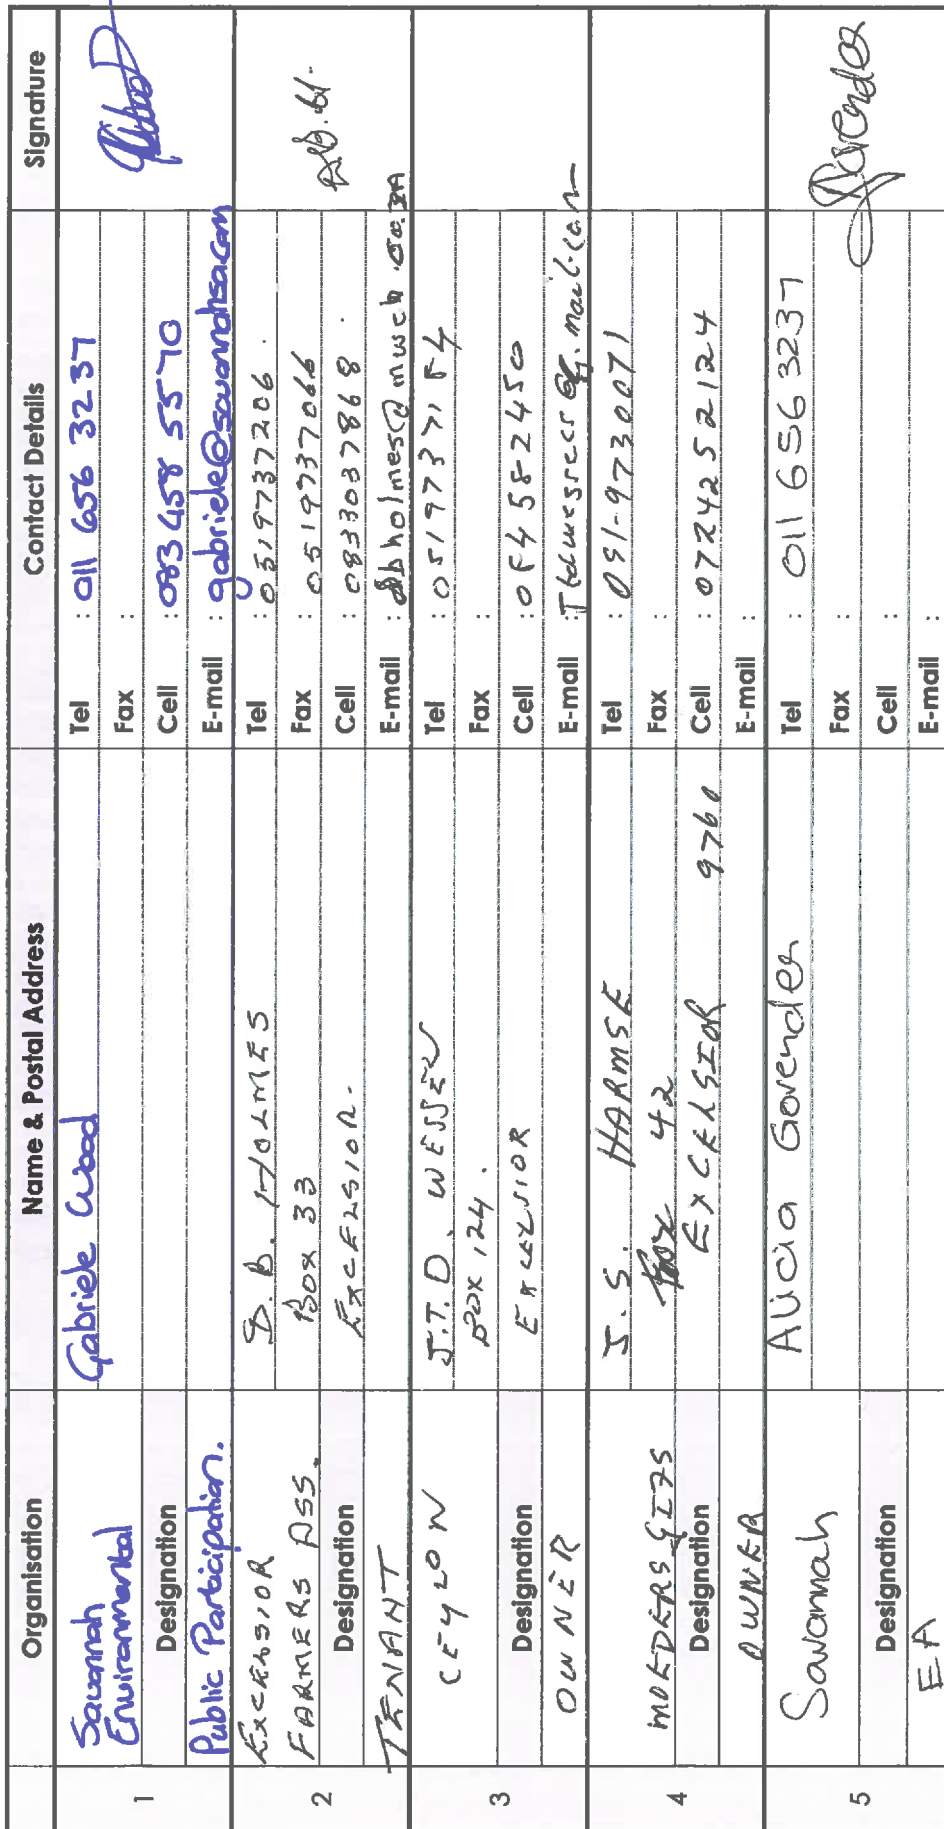 Organisation
Name & Postal Address
Contact Details
Signature
1
Savannah
Environmental
Designation
Public Participation.
Gabriele Wood
Tel : 011 656 3237
Fax :
Cell : 083 458 5570
E-mail : gabriele@savannahsa.com
2
EXCELSIOR
FARMERS ASS.
Designation
TENANT
D. B. HOLMES
Box 33
EXCELSIOR.
Tel : 0519737206.
Fax : 0519737066
Cell : 0833037868.
E-mail : dbholmes@
3
CEYLON
Designation
OWNER
J.T.D. WESSELS
BOX 124.
EXCELSIOR
Tel : 05197371
Fax :
Cell : 4582450
E-mail :
4
Designation
OWNER
J. S. HARMSE
Box 42
EXCELSIOR 9760
Tel : 051-9730071
Fax
Cell : 0724252124
E-mail :
5
Savannah
Designation
EA
Alicia Govender
Tel : 011 656 3237
Fax :
Cell :
E-mail :
Govender